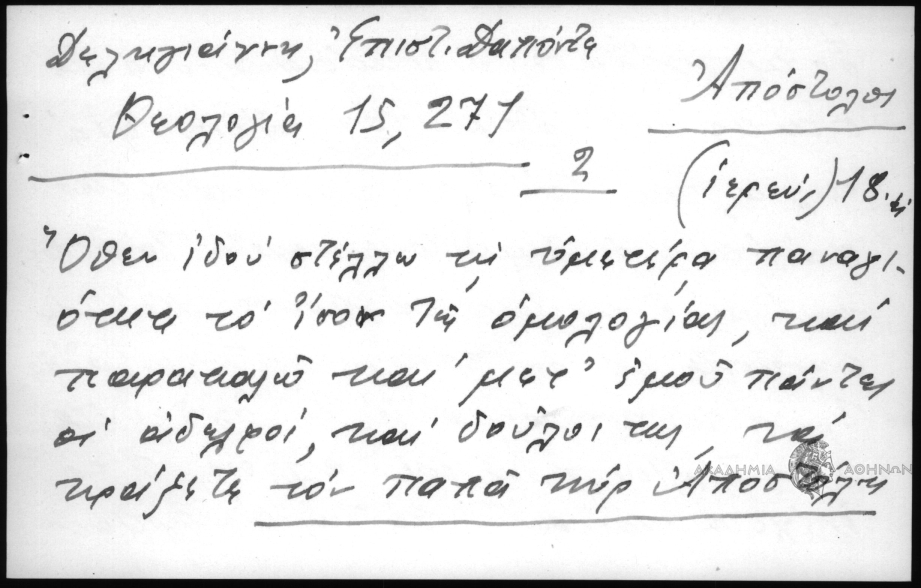 Δεληγιάννη, Ἐπιστ. Δαπόντε
Θεολογία 15, 271
Ἀπόστολος
2
(ἱερεύς) 18.
Ὅθεν ἰδού στέλλω τῇ ὑμετέρᾳ παναγι-
ότητι τό ἴσον τῆς ὁμολογίας, καί
παρακαλῶ καί μετ' ἐμοῦ πάντες
οἱ ἀδελφοί, καί δοῦλοι της, νά
κράξετε τόν παπᾶ κύρ Ἀποστόλη
ΑΚΑΔΗΜΙΑ ΑΘΗΝΩΝ